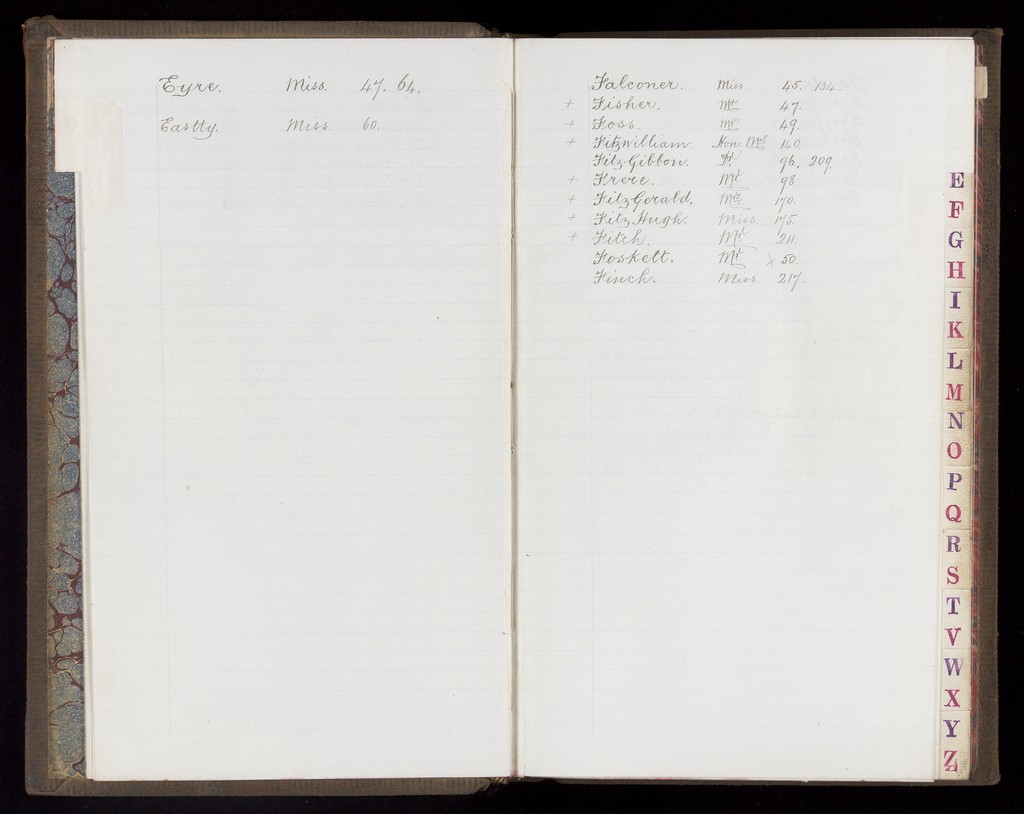 Eyre. Miss. 47. 64.
Eastty. Miss. 60.
Falconer. Miss 45. 134.
+ Fisher. Mr 47.
+ Foss. Mrs 49.
+ Fitzwilliam Hon: Mrs 140.
Fitz-Gibbon. Dr. 96. 209.
+ Frere. Mr 98.
+ FitzGerald. Mrs 170.
+ Fitz Hugh. Miss. 175.
+ Fitch. Mr 211.
Foskett. Mr x 50.
Finch. Miss 217.
E
F
G
H
I
K
L
M
N
O
P
Q
R
S
T
V
W
X
Y
Z